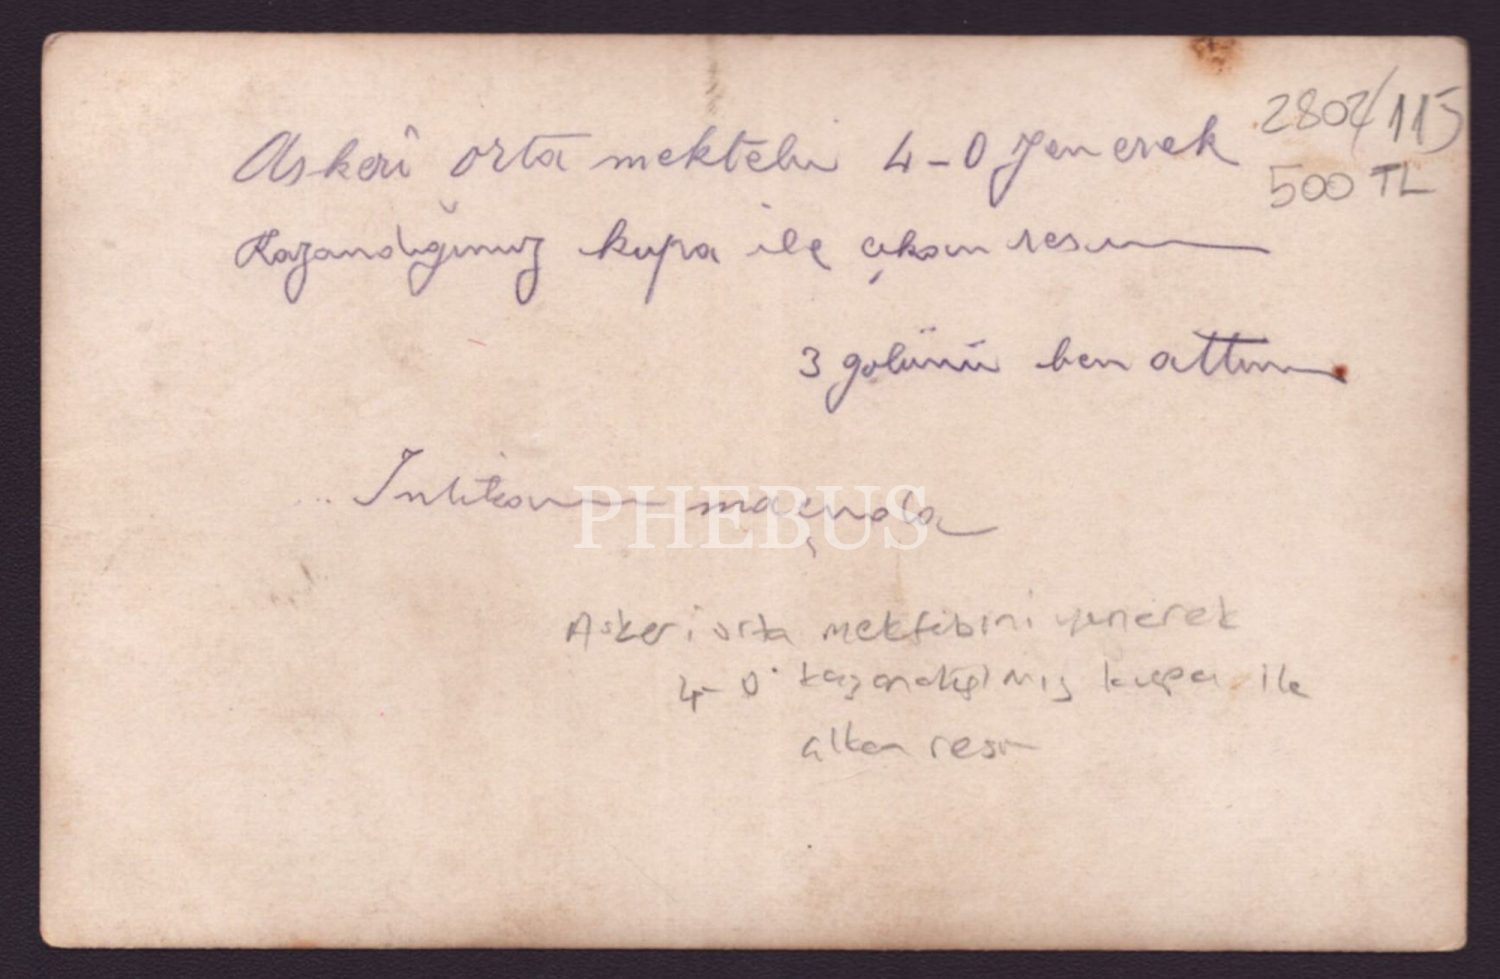 Askerî orta mektebi 4-0 yenerek
kazandığımız kupa ile çıkan resim
3 golünü ben attım.
İntikam maçında
PHEBUS
Askeri orta mektebini yenerek
4-0 kazandığımız kupa ile
alkan resim
2802/115
500 TL